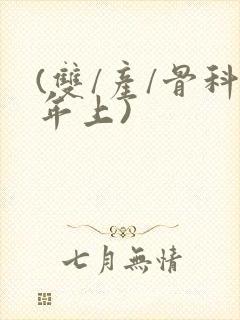 (雙/產/骨科
年上)
七月無情